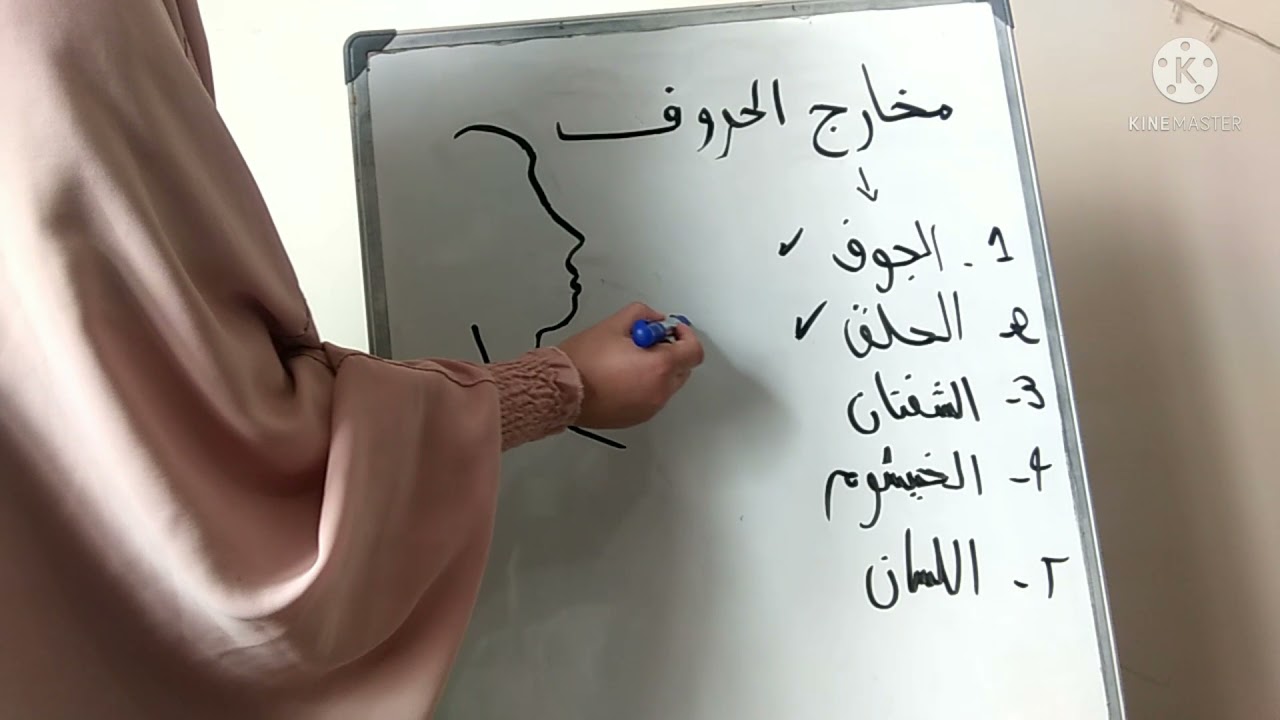 مخارج الحروف
1. الجوف ✓
2 الحلق ✓
3- الشفتان
4- الخيشوم
- اللسان
K
KINEMASTER